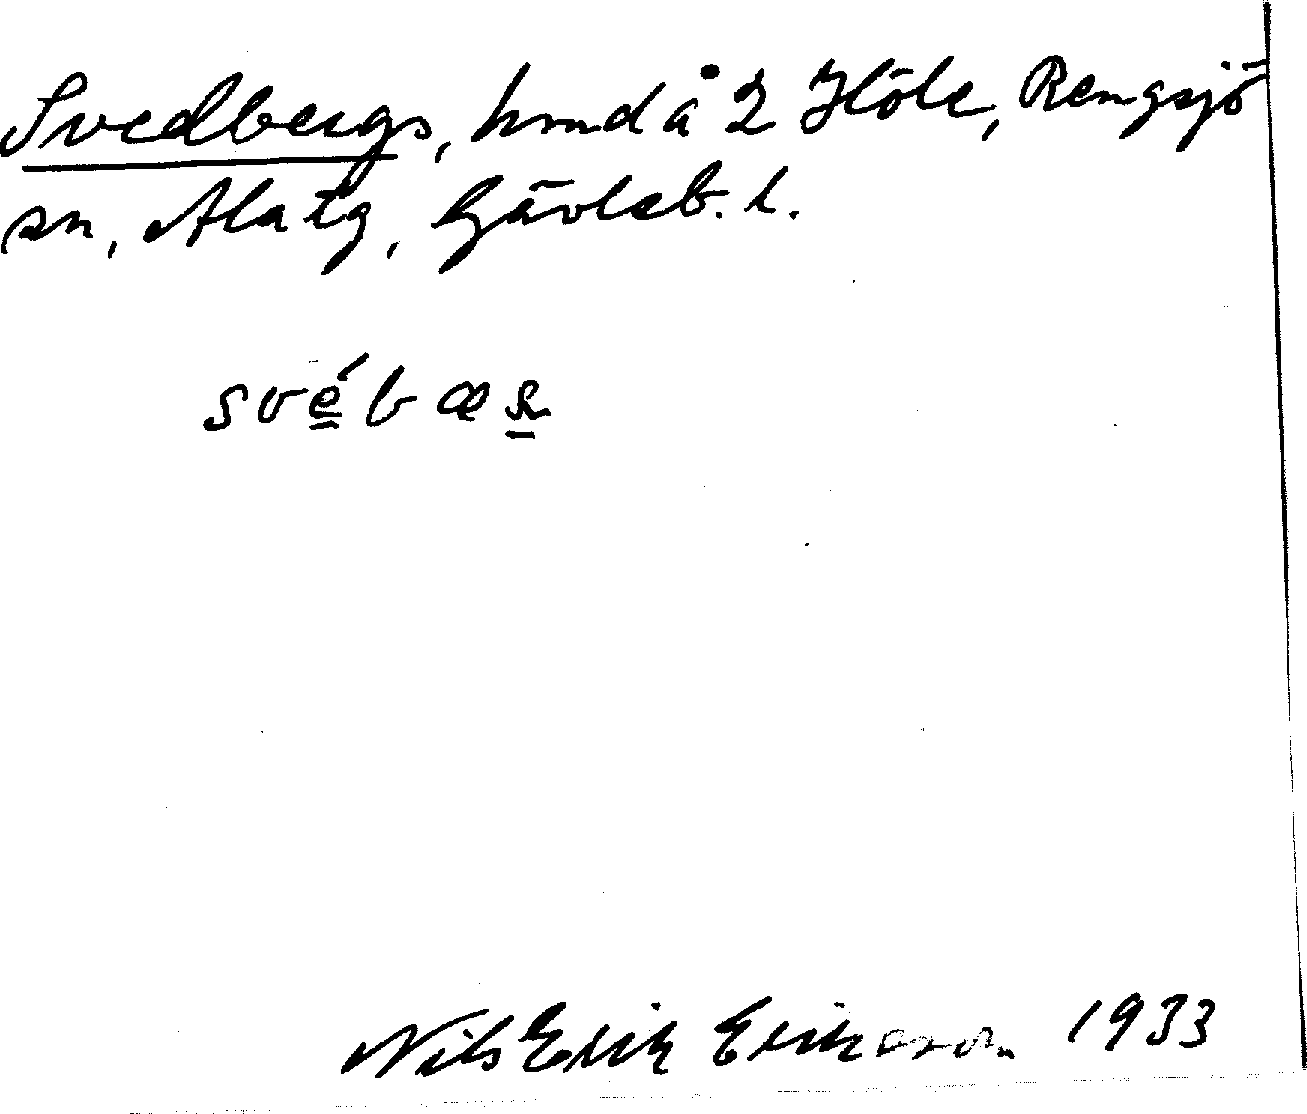 Svedbergs, hmd å 2 Höle, Rengsjö
sn, Ala tg, Gävleb. l.
svébæʀ
Nils Erik Erikson 1933